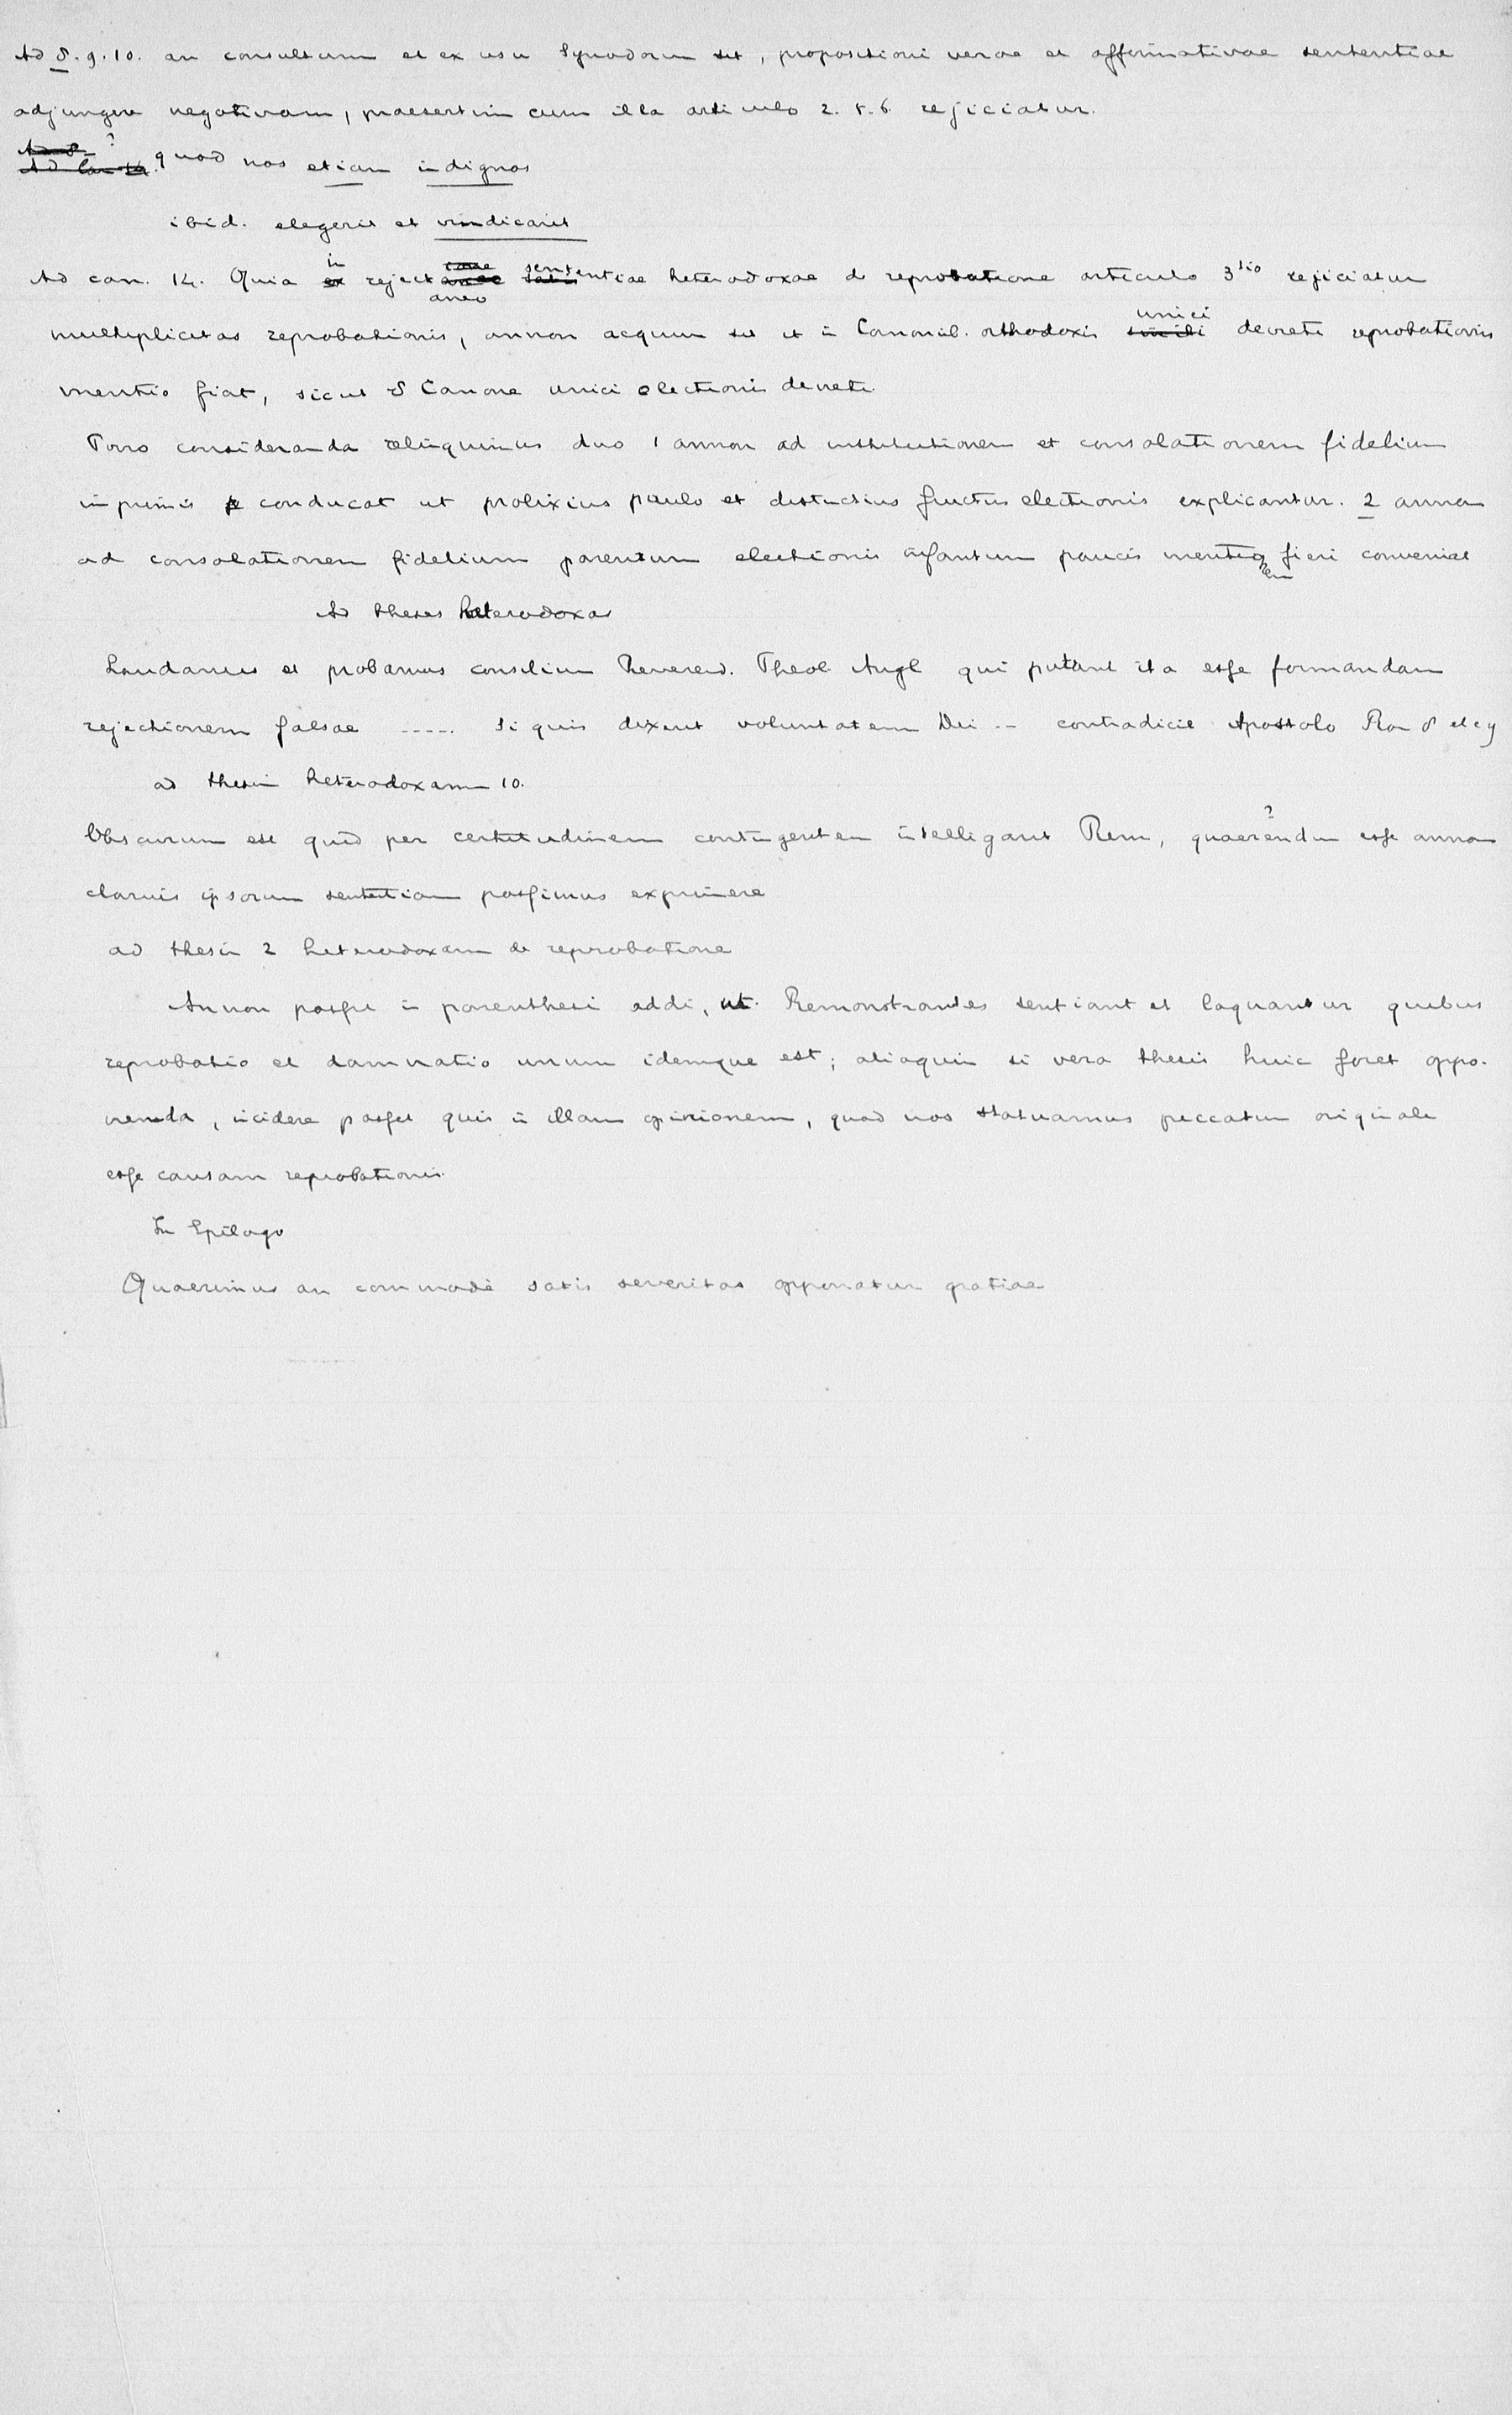 Ad 8. 9. 10. an consultum et ex usu Synodorum sit, propositioni verae et affirmativae sententiae
adjungere negativam, praesertim cum illa articulo 2. 5. 6. rejiciatur.
? quod nos etiam indignos
ibid. elegerit et vindicarit
Ad can. 14. Quia in rejectaneo sententiae heterodoxae de reprobatione articulo 3tio rejiciatur
multiplicitas reprobationis, annon aequum sit ut in Canonib. orthodoxis unici decreti reprobationis
mentio fiat, sicut 8 Canone unici electionis decreti.
Porro consideranda relinquimus duo 1 annon ad institutionem et consolationem fidelium
inprimis conducat ut prolixius paulo et distinctius fructus electionis explicantur. 2 annon
ad consolationem fidelium parentum electionis infantum paucis mentionem fieri conveniat
Ad theses heterodoxas
Laudamus et probamus consilium Reverend. Theol Angl qui putant ita esse formandam
rejectionem falsae ..... Si quis dixerit voluntatem Dei -- contradicit Apostolo Rom 8 et 9
ad thesin heterodoxam 10.
Obscurum est quid per certitudinem contingentem intelligant Rem, quaerendum ? esse annon
clarius ipsorum sententiam possimus exprimere
ad thesin 2 heterodoxam de reprobatione
Annon posset in parenthesi addi, ut Remonstrantes sentiant et loquantur quibus
reprobatio et damnatio unum idemque est; alioquin si vera thesis huic foret oppo-
nenda, incidere posset quis in illam opinionem, quod nos statuamus peccatum originale
esse causam reprobationis.
In Epilogo
Quaerimus an commodè satis severitas opponatur gratiae